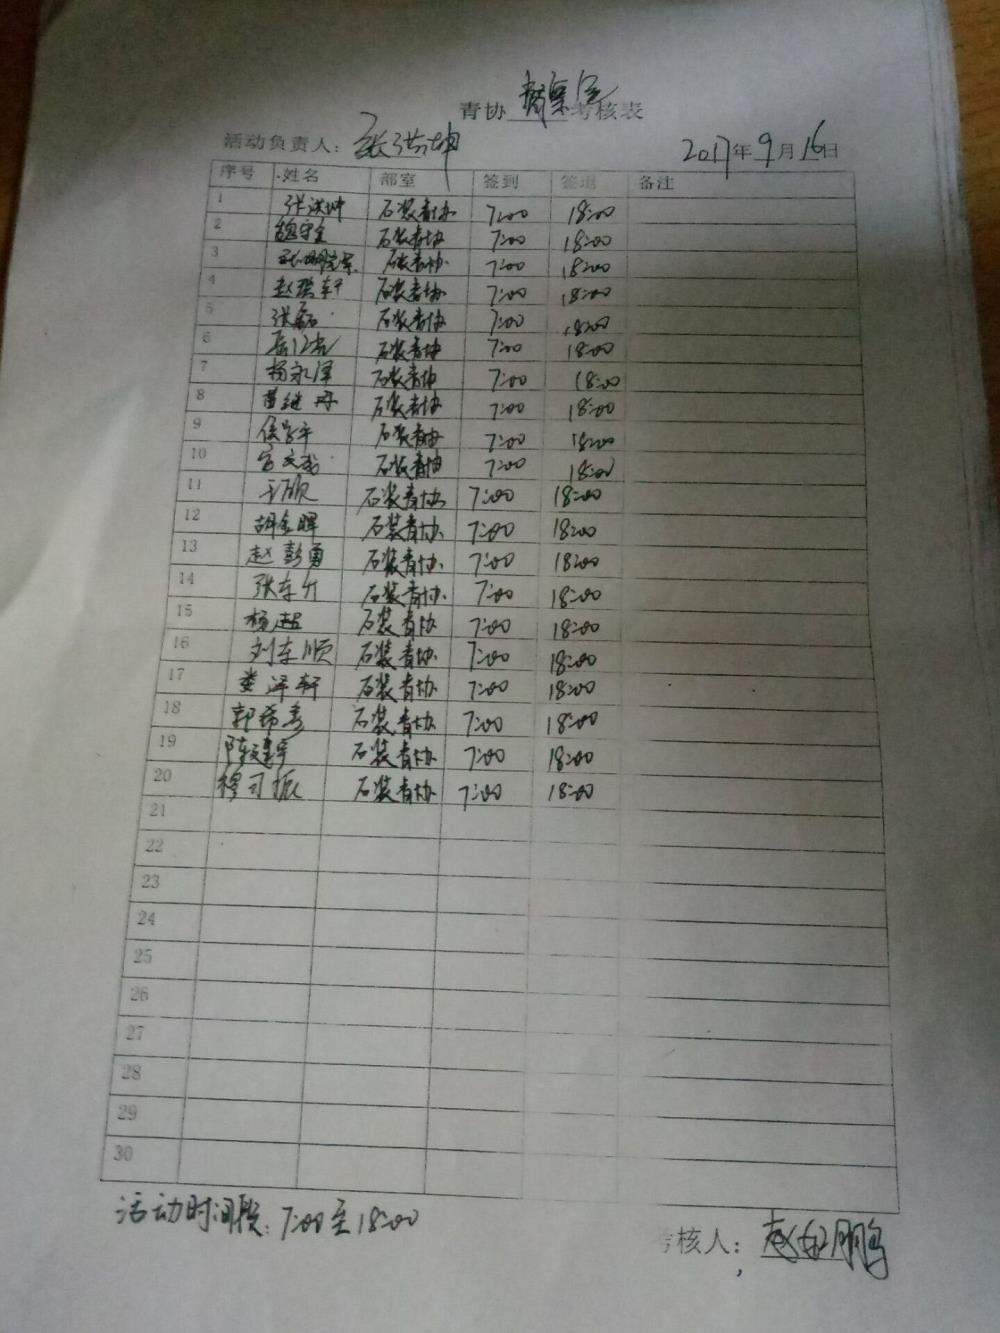 青协 考核表
活动负责人：张洪坤 2017年9月16日
序号 姓名 部室 签到 签退 备注
1 张洪坤 石装青协 7:00 18:00
2 石装青协 7:00 18:00
3 石装青协 7:00 18:00
4 赵 轩 石装青协 7:00 18:00
5 张磊 石装青协 7:00 18:00
6 石装青协 7:00 18:00
7 杨永泽 石装青协 7:00 18:00
8 石装青协 7:00 18:00
9 石装青协 7:00 18:00
10 石装青协 7:00 18:00
11 石装青协 7:00 18:00
12 胡金晖 石装青协 7:00 18:00
13 赵彭勇 石装青协 7:00 18:00
14 张东升 石装青协 7:00 18:00
15 杨超 石装青协 7:00 18:00
16 刘东顺 石装青协 7:00 18:00
17 娄泽轩 石装青协 7:00 18:00
18 郭希 石装青协 7:00 18:00
19 陈建宇 石装青协 7:00 18:00
20 穆可振 石装青协 7:00 18:00
21
22
23
24
25
26
27
28
29
30
活动时间段：7:00至18:00
考核人：赵 鹏